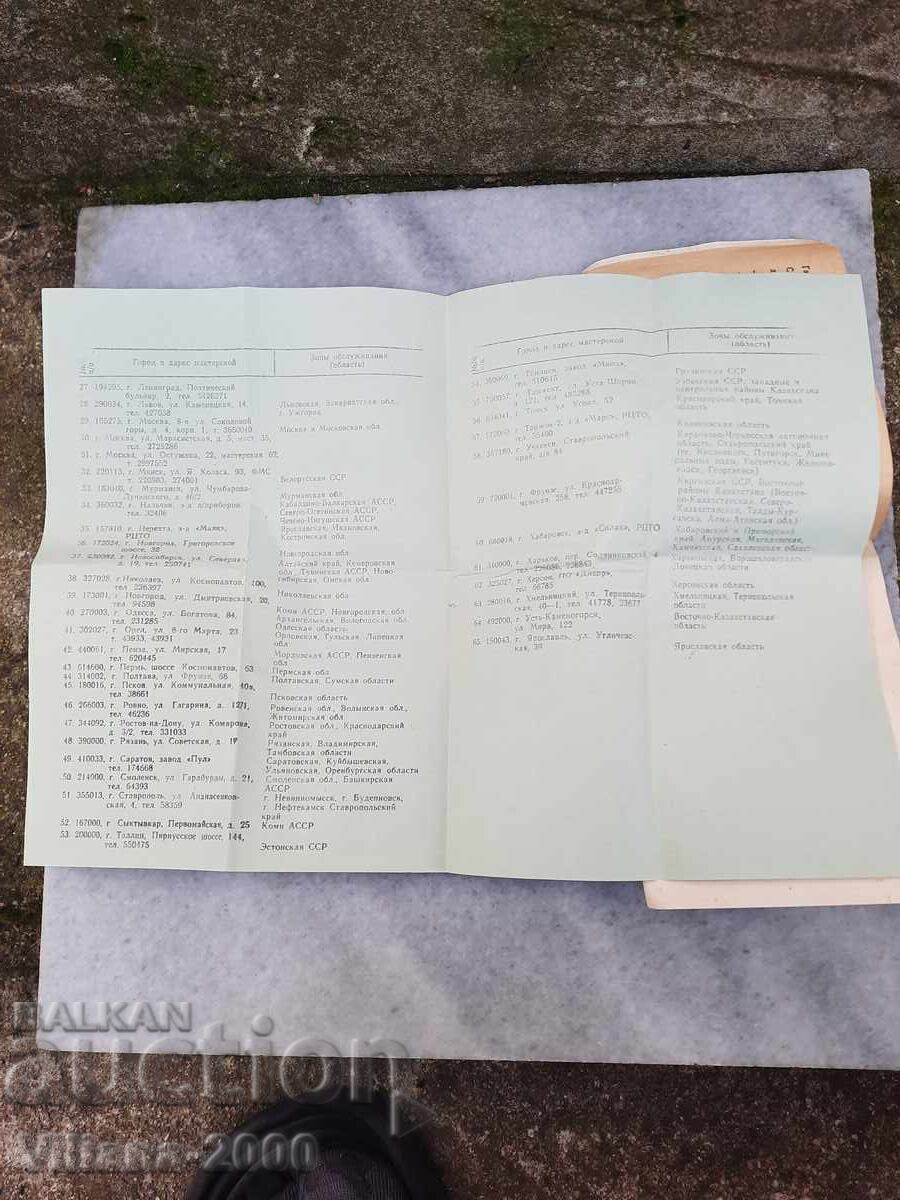 №№ п/п
Город и адрес мастерской
Зоны обслуживания (область)
27. 194295, г. Ленинград, Поэтический
бульвар, 2, тел. 5426271
28. 290034, г. Львов, ул. Каменецкая, 14,
тел. 427038
Львовская, Закарпатская обл.,
г. Ужгород
29. 105275, г. Москва, 8-я ул. Соколиной
горы, д. 4, корп. 1, т. 3650040
Москва и Московская обл.
30. г. Москва, ул. Марксистская, д. 5, маст. 35,
тел. 2725286
31. г. Москва, ул. Остужева, 22, мастерская 67,
т. 2997552
32. 220113, г. Минск, ул. Я. Коласа, 93, ФМС
т. 220983, 374001
Белорусская ССР
33. 183008, г. Мурманск, ул. Чумбарова-
Лучинского, д. 46/2
Мурманская обл.
34. 360032, г. Нальчик, з-д п/приборов,
тел. 32406
Кабардино-Балкарская АССР,
Северо-Осетинская АССР,
Чечено-Ингушская АССР
35. 157810, г. Нерехта, з-д «Маяк», РЦТО
Ярославская, Ивановская,
Костромская обл.
36. 173024, г. Новгород, Григоровское
шоссе, 32
Новгородская обл.
37. 630082, г. Новосибирск, ул. Северная,
д. 19, тел. 250741
Алтайский край, Кемеровская
обл., Тувинская АССР, Ново-
сибирская, Омская обл
38. 327028, г. Николаев, ул. Космонавтов, 100,
тел. 236397
Николаевская обл
39. 173001, г. Новгород, ул. Дмитриевская, 20,
тел. 94598
Коми АССР, Новгородская обл.,
Архангельская, Вологодская обл
40. 270003, г. Одесса, ул. Богатова, 84,
тел. 231285
Одесская область
41. 302027, г. Орел, ул. 8-го Марта, 23
т. 43933, 43931
Орловская, Тульская, Липецкая
обл
42. 440061, г. Пенза, ул. Мирская, 17
тел. 620445
Мордовская АССР, Пензенская
обл.
43. 614600, г. Пермь, шоссе Космонавтов, 63
Пермская обл
44. 314002, г. Полтава, ул Фрунзе, 66
Полтавская, Сумская области
45. 180016, г. Псков, ул. Коммунальная, 40а,
тел. 38661
Псковская область
46. 266003, г. Ровно, ул. Гагарина, д. 1271,
тел. 46236
Ровенская обл., Волынская обл.,
Житомирская обл
47. 344092, г. Ростов-на-Дону, ул. Комарова,
д. 3/2, тел. 331033
Ростовская обл., Краснодарский
край
48. 390000, г. Рязань, ул. Советская, д. 19
Рязанская, Владимирская,
Тамбовская области
49. 410033, г. Саратов, завод «Пул»
тел. 174668
Саратовская, Куйбышевская,
Ульяновская, Оренбургская области
50. 214000, г. Смоленск, ул. Гарабурды, д. 21,
тел. 64393
Смоленская обл., Башкирская
АССР
51. 355013, г. Ставрополь, ул.
ская, 4, тел. 58359
г. Невинномысск, г. Буденновск,
г. Нефтекамск Ставропольский
край
52. 167000, г. Сыктывкар, Первомайская, д. 25
Коми АССР
53. 200000, г. Таллин, Пярнусское шоссе, 144,
тел. 550475
Эстонская ССР
№№ п/п
Город и адрес мастерской
Зоны обслуживания (область)
54. 380060, г. Тбилиси, завод
тел. 510615
Грузинская ССР
55. 700057, г. Ташкент, ул. Уста-Ширин,
121, тел. 485288
Узбекская ССР, западные и
центральные районы Казахстана
56. 634041, г. Томск, ул. Усова, 52
Красноярский край, Томская
область
57. г. Торжок 2, з-д «Марс», РЦТО,
тел. 55400
Калининская область
58. 357180, г. Учкекен, Ставропольский
край, а/я 84
Карачаево-Черкесская автономная
область, Ставропольский край
(гг. Кисловодск, Пятигорск, Мине-
ральные воды, Ессентуки, Железно-
водск, Георгиевск)
59. 720001, г. Фрунзе, ул. Краснояр-
ченская, 258, тел. 447255
Киргизская ССР, Восточные
районы Казахстана (Восточно-
Казахстанская, Северо-
Казахстанская, Талды-Кур-
ганская, Алма-Атинская обл.)
60. 680018, г. Хабаровск, з-д РЦТО
Хабаровский и Приморский
край, Амурская, Магаданская,
Камчатская, Сахалинская области
61. 310000, г. Харьков, пер. 4
Харьковская, Ворошиловградская,
Донецкая области
62. 325027, г. Херсон, ПО «Днепр»,
тел. 66785
Херсонская область
63. 280016, г. Хмельницкий, ул. Тернополь-
ская, 40—1, тел. 41778, 33677
Хмельницкая, Тернопольская
области
64. 492000, г. Усть-Каменогорск,
ул. Мира, 122
Восточно-Казахстанская
область
65. 150043, г. Ярославль, ул. Угличес-
кая, 39
Ярославская область
BALKAN
auction
Viliana-2000